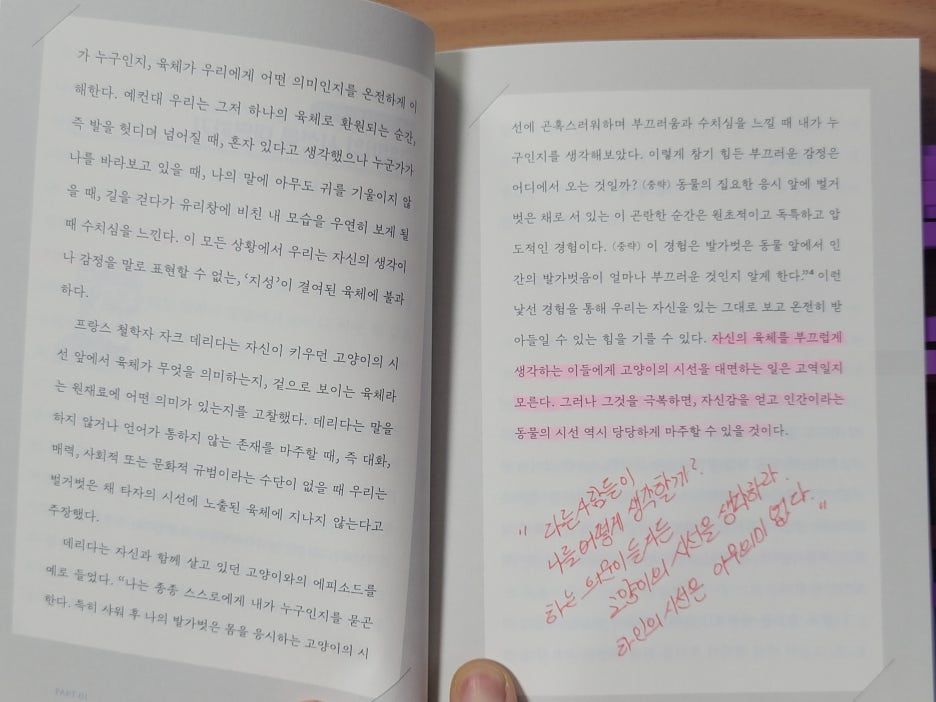 가 누구인지, 육체가 우리에게 어떤 의미인지를 온전하게 이
해한다. 예컨대 우리는 그저 하나의 육체로 환원되는 순간,
즉 발을 헛디뎌 넘어질 때, 혼자 있다고 생각했으나 누군가가
나를 바라보고 있을 때, 나의 말에 아무도 귀를 기울이지 않
을 때, 길을 걷다가 유리창에 비친 내 모습을 우연히 보게 될
때 수치심을 느낀다. 이 모든 상황에서 우리는 자신의 생각이
나 감정을 말로 표현할 수 없는, ‘지성’이 결여된 육체에 불과
하다.
프랑스 철학자 자크 데리다는 자신이 키우던 고양이의 시
선 앞에서 육체가 무엇을 의미하는지, 겉으로 보이는 육체라
는 원재료에 어떤 의미가 있는지를 고찰했다. 데리다는 말을
하지 않거나 언어가 통하지 않는 존재를 마주할 때, 즉 대화,
매력, 사회적 또는 문화적 규범이라는 수단이 없을 때 우리는
벌거벗은 채 타자의 시선에 노출된 육체에 지나지 않는다고
주장했다.
데리다는 자신과 함께 살고 있던 고양이와의 에피소드를
예로 들었다. “나는 종종 스스로에게 내가 누구인지를 묻곤
한다. 특히 샤워 후 나의 발가벗은 몸을 응시하는 고양이의 시
선에 곤혹스러워하며 부끄러움과 수치심을 느낄 때 내가 누
구인지를 생각해보았다. 이렇게 참기 힘든 부끄러운 감정은
어디에서 오는 것일까? (중략) 동물의 집요한 응시 앞에 벌거
벗은 채로 서 있는 이 곤란한 순간은 원초적이고 독특하고 압
도적인 경험이다. (중략) 이 경험은 발가벗은 동물 앞에서 인
간의 발가벗음이 얼마나 부끄러운 것인지 알게 한다.” 이런
낯선 경험을 통해 우리는 자신을 있는 그대로 보고 온전히 받
아들일 수 있는 힘을 기를 수 있다. 자신의 육체를 부끄럽게
생각하는 이들에게 고양이의 시선을 대면하는 일은 고역일지
모른다. 그러나 그것을 극복하면, 자신감을 얻고 인간이라는
동물의 시선 역시 당당하게 마주할 수 있을 것이다.
“ 다른 사람들이
나를 어떻게 생각할까?
하는 의문이 든 자는
고양이의 시선을 생각하라.
타인의 시선은 아무 의미 없다. ”